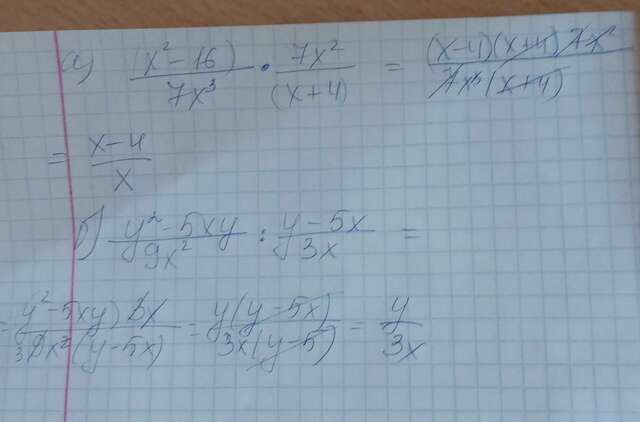 а) (x²-16)/7x³ · 7x²/(x+4) = (x-4)(x+4) 7x²/7x³ (x+4)
= x-4/x
б) y²-5xy/9x² : y-5x/3x =
= (y²-5xy) 3x/9x² (y-5x) 3 = y(y-5x)/3x(y-5) = y/3x